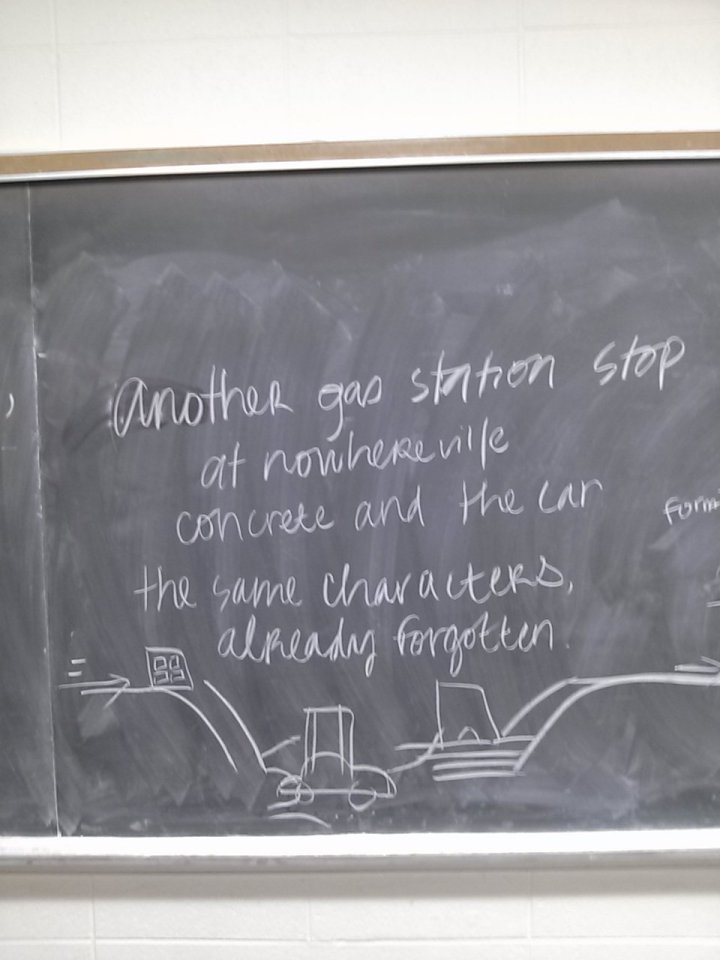 another gas station stop
at nowhereville
concrete and the car
the same characters,
already forgotten.